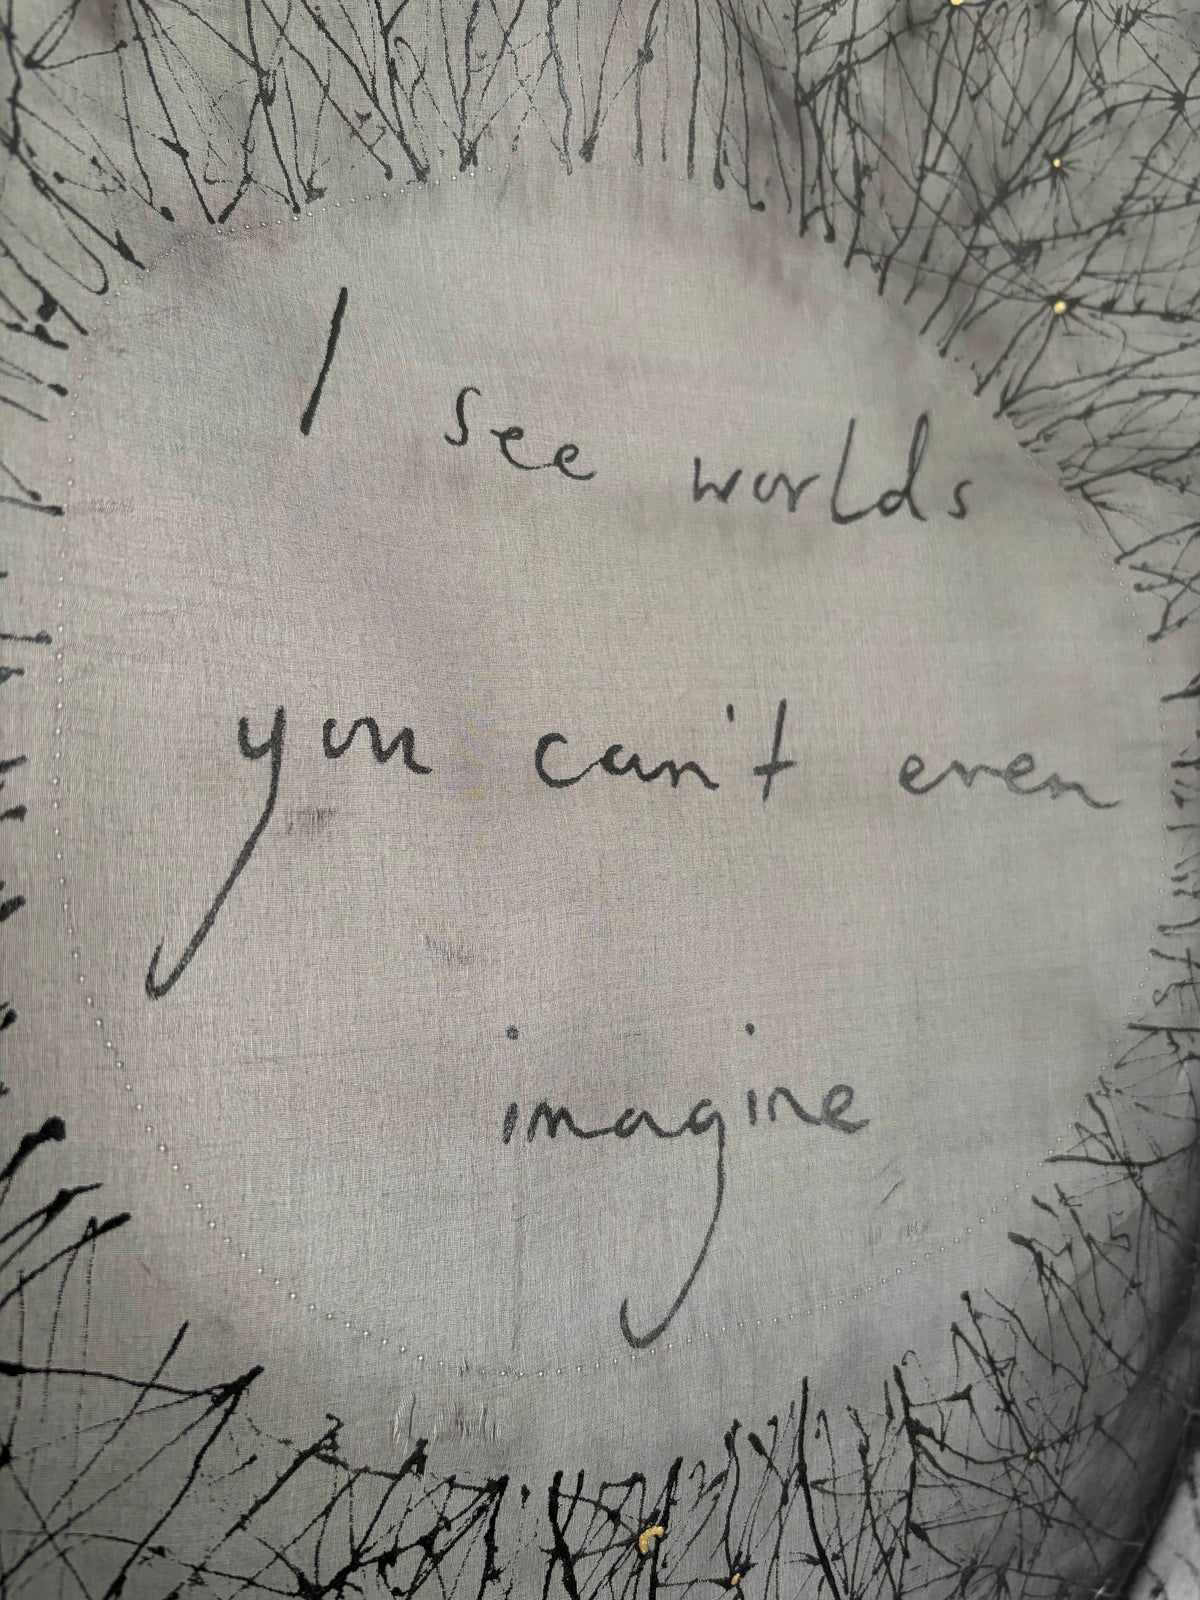 I see worlds
you can't even
imagine